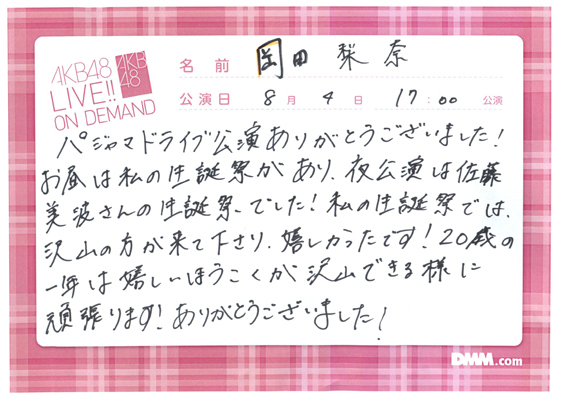 AKB48
LIVE!!
ON DEMAND
AKB
48
名前 岡田 梨奈
公演日 8月 4日 17:00 公演
パジャマドライブ公演ありがとうございました!
お昼は私の生誕祭があり、夜公演は佐藤
美波さんの生誕祭でした!私の生誕祭では、
沢山の方が来て下さり、嬉しかったです!20歳の
一年は嬉しいほうこくが沢山できる様に
頑張ります!ありがとうございました!
DMM.com